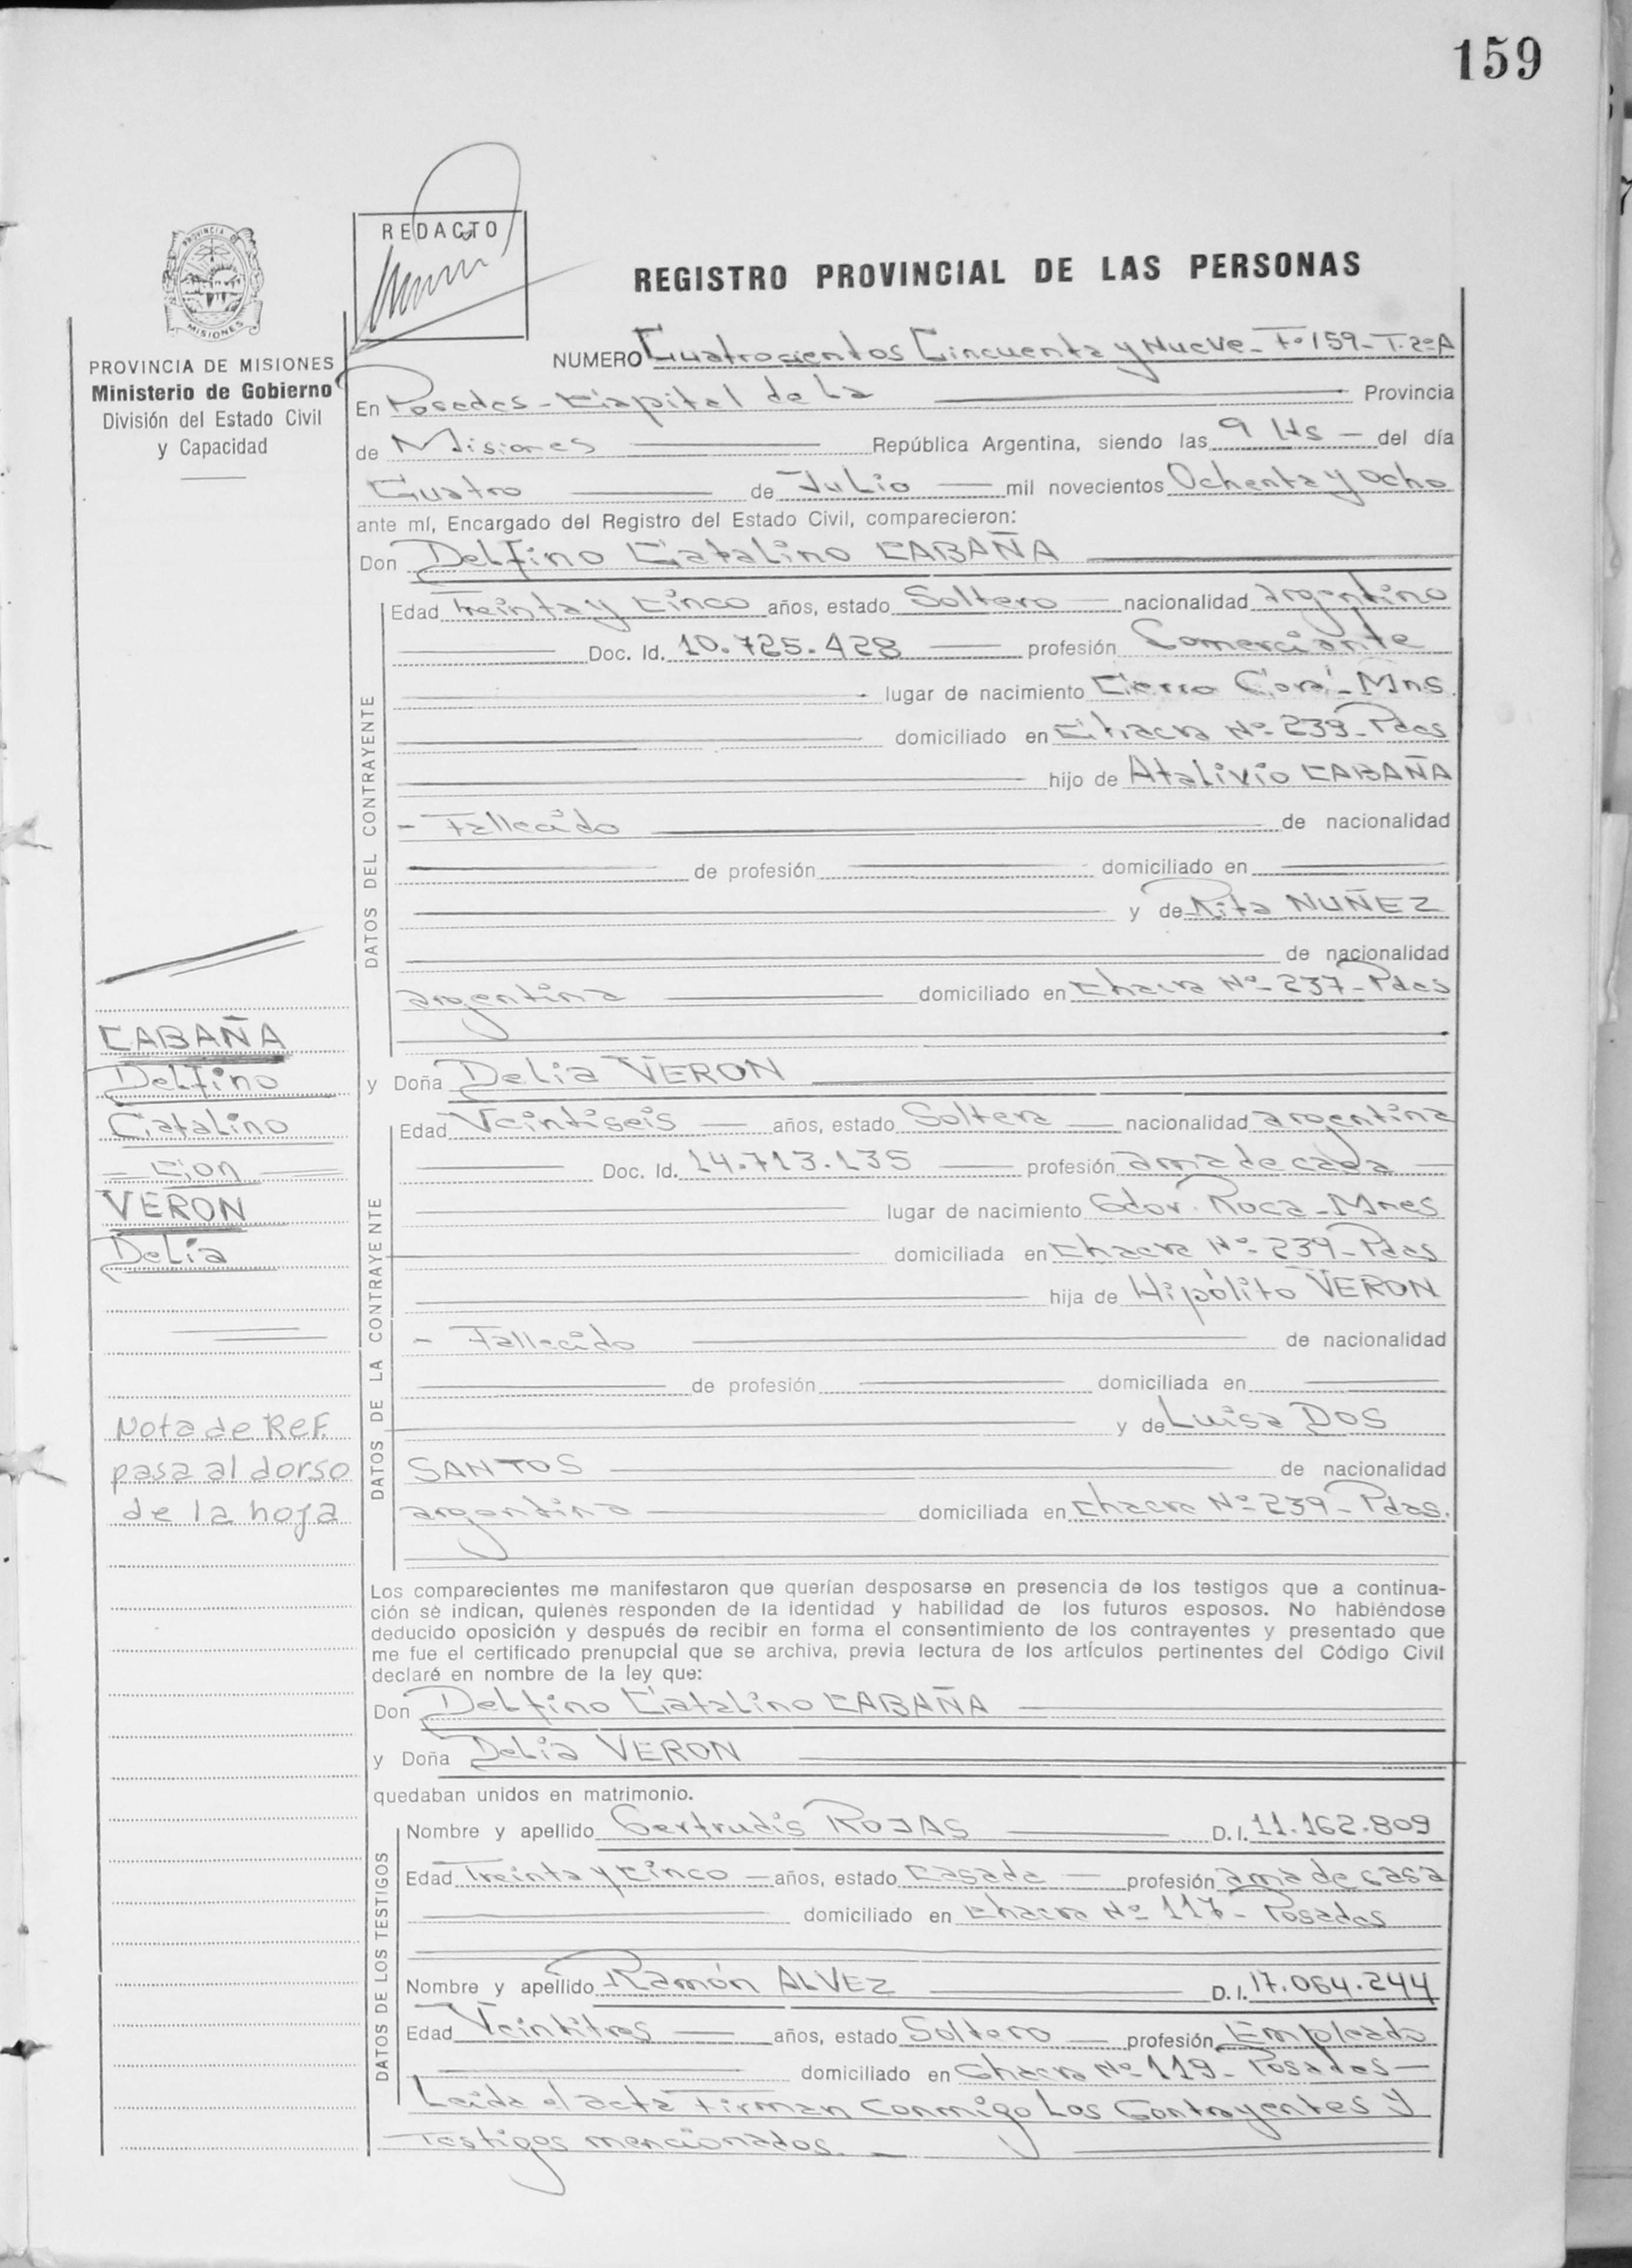 159
PROVINCIA DE
MISIONES
REDACTO
REGISTRO PROVINCIAL DE LAS PERSONAS
PROVINCIA DE MISIONES
Ministerio de Gobierno
División del Estado Civil
y Capacidad
NUMERO Cuatrocientos Cincuenta y Nueve - Fº 159 - T. 2º A
En Posadas - Capital de La Provincia
de Misiones República Argentina, siendo las 9 Hs - del día
Cuatro de Julio mil novecientos Ochenta y Ocho
ante mí, Encargado del Registro del Estado Civil, comparecieron:
Don Delfino Catalino CABAÑA
DATOS DEL CONTRAYENTE
Edad Treinta y Cinco años, estado Soltero nacionalidad argentino
Doc. Id. 10.725.428 profesión Comerciante
lugar de nacimiento Cerro Corá - Mns.
domiciliado en Chacra Nº 239 - Pdas
hijo de Atalivio CABAÑA
- Fallecido de nacionalidad
de profesión domiciliado en
y de Rita NUÑEZ
de nacionalidad
argentina domiciliado en Chacra Nº 237 - Pdas
CABAÑA
Delfino
Catalino
= Con =
VERON
Delia
Nota de Ref.
pasa al dorso
de la hoja
y Doña Delia VERON
DATOS DE LA CONTRAYENTE
Edad Veintiseis años, estado Soltera nacionalidad argentina
Doc. Id. 14.713.135 profesión ama de casa
lugar de nacimiento Gdor. Roca - Mnes
domiciliada en Chacra Nº 239 - Pdas
hija de Hipólito VERON
- Fallecido de nacionalidad
de profesión domiciliada en
y de Luisa DOS
SANTOS de nacionalidad
argentina domiciliada en Chacra Nº 239 - Pdas.
Los comparecientes me manifestaron que querían desposarse en presencia de los testigos que a continua-
ción se indican, quienes responden de la identidad y habilidad de los futuros esposos. No habiéndose
deducido oposición y después de recibir en forma el consentimiento de los contrayentes y presentado que
me fue el certificado prenupcial que se archiva, previa lectura de los artículos pertinentes del Código Civil
declaré en nombre de la ley que:
Don Delfino Catalino CABAÑA
y Doña Delia VERON
quedaban unidos en matrimonio.
DATOS DE LOS TESTIGOS
Nombre y apellido Gertrudis ROJAS D.I. 11.162.809
Edad Treinta y Cinco años, estado Casada profesión ama de casa
domiciliado en Chacra Nº 117 - Posadas
Nombre y apellido Ramón ALVEZ D.I. 17.064.244
Edad Veintitres años, estado Soltero profesión Empleado
domiciliado en Chacra Nº 119 - Posadas
Leida el acta Firman conmigo Los Contrayentes y
Testigos mencionados. -